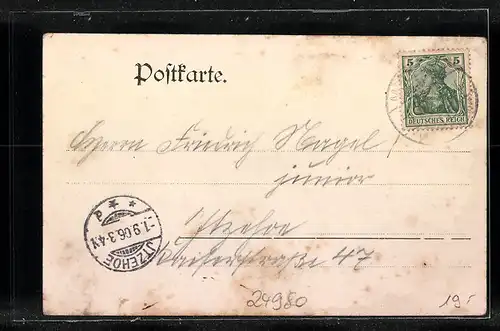 Postkarte.
5 5
DEUTSCHES REICH
Herrn Friedrich Nagel,
junior
Itzehoe
Kaiserstraße 47
ITZEHOE
-1.9.06.3-4N
24980
19.-